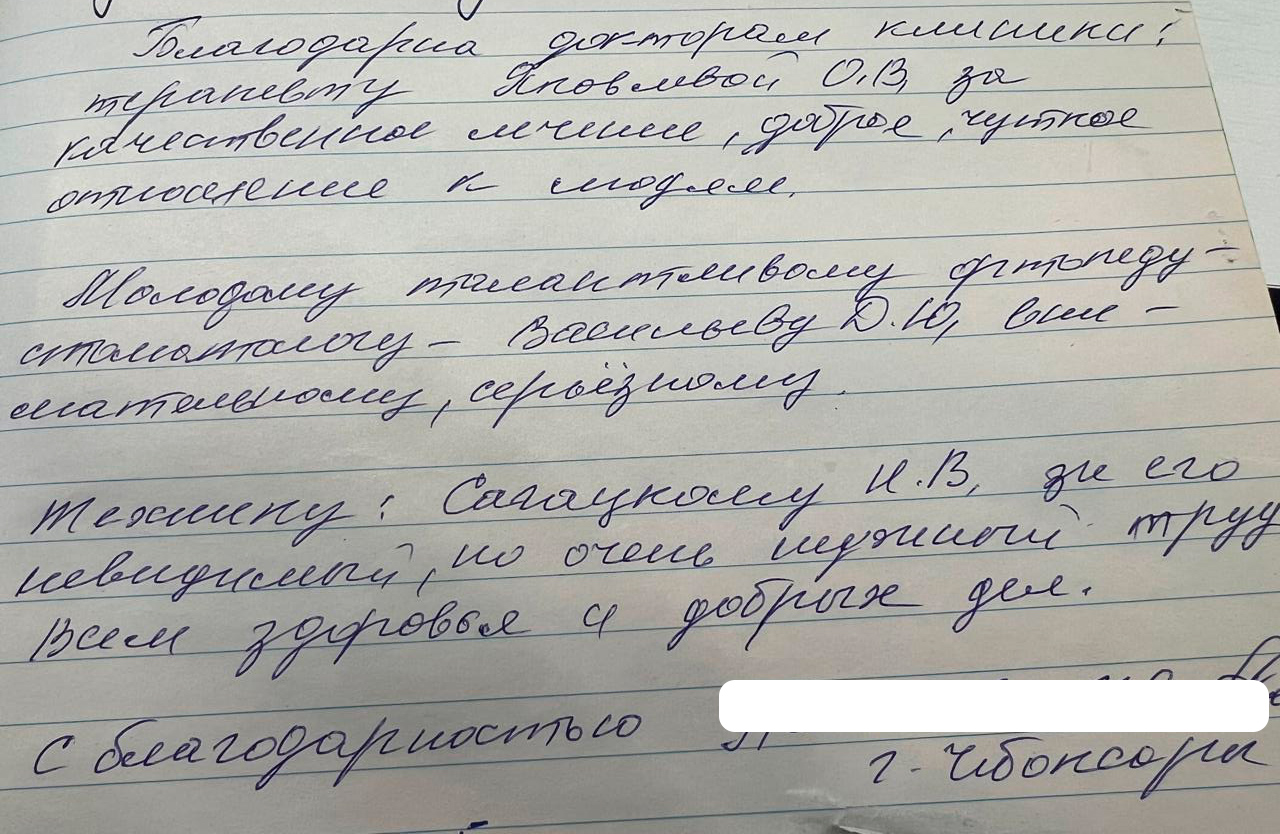 Благодарна докторам клиники:
терапевту Яковлевой О.В, за
качественное лечение, доброе, чуткое
отношение к людям.
Молодому талантливому ортопеду-
стоматологу - Васильеву Д.Ю, вни-
мательному, серьёзному.
Технику: Сагацкому Н.В, за его
невидимый, но очень нужный труд
Всем здоровья и добрых дел.
С благодарностью
г. Чебоксары